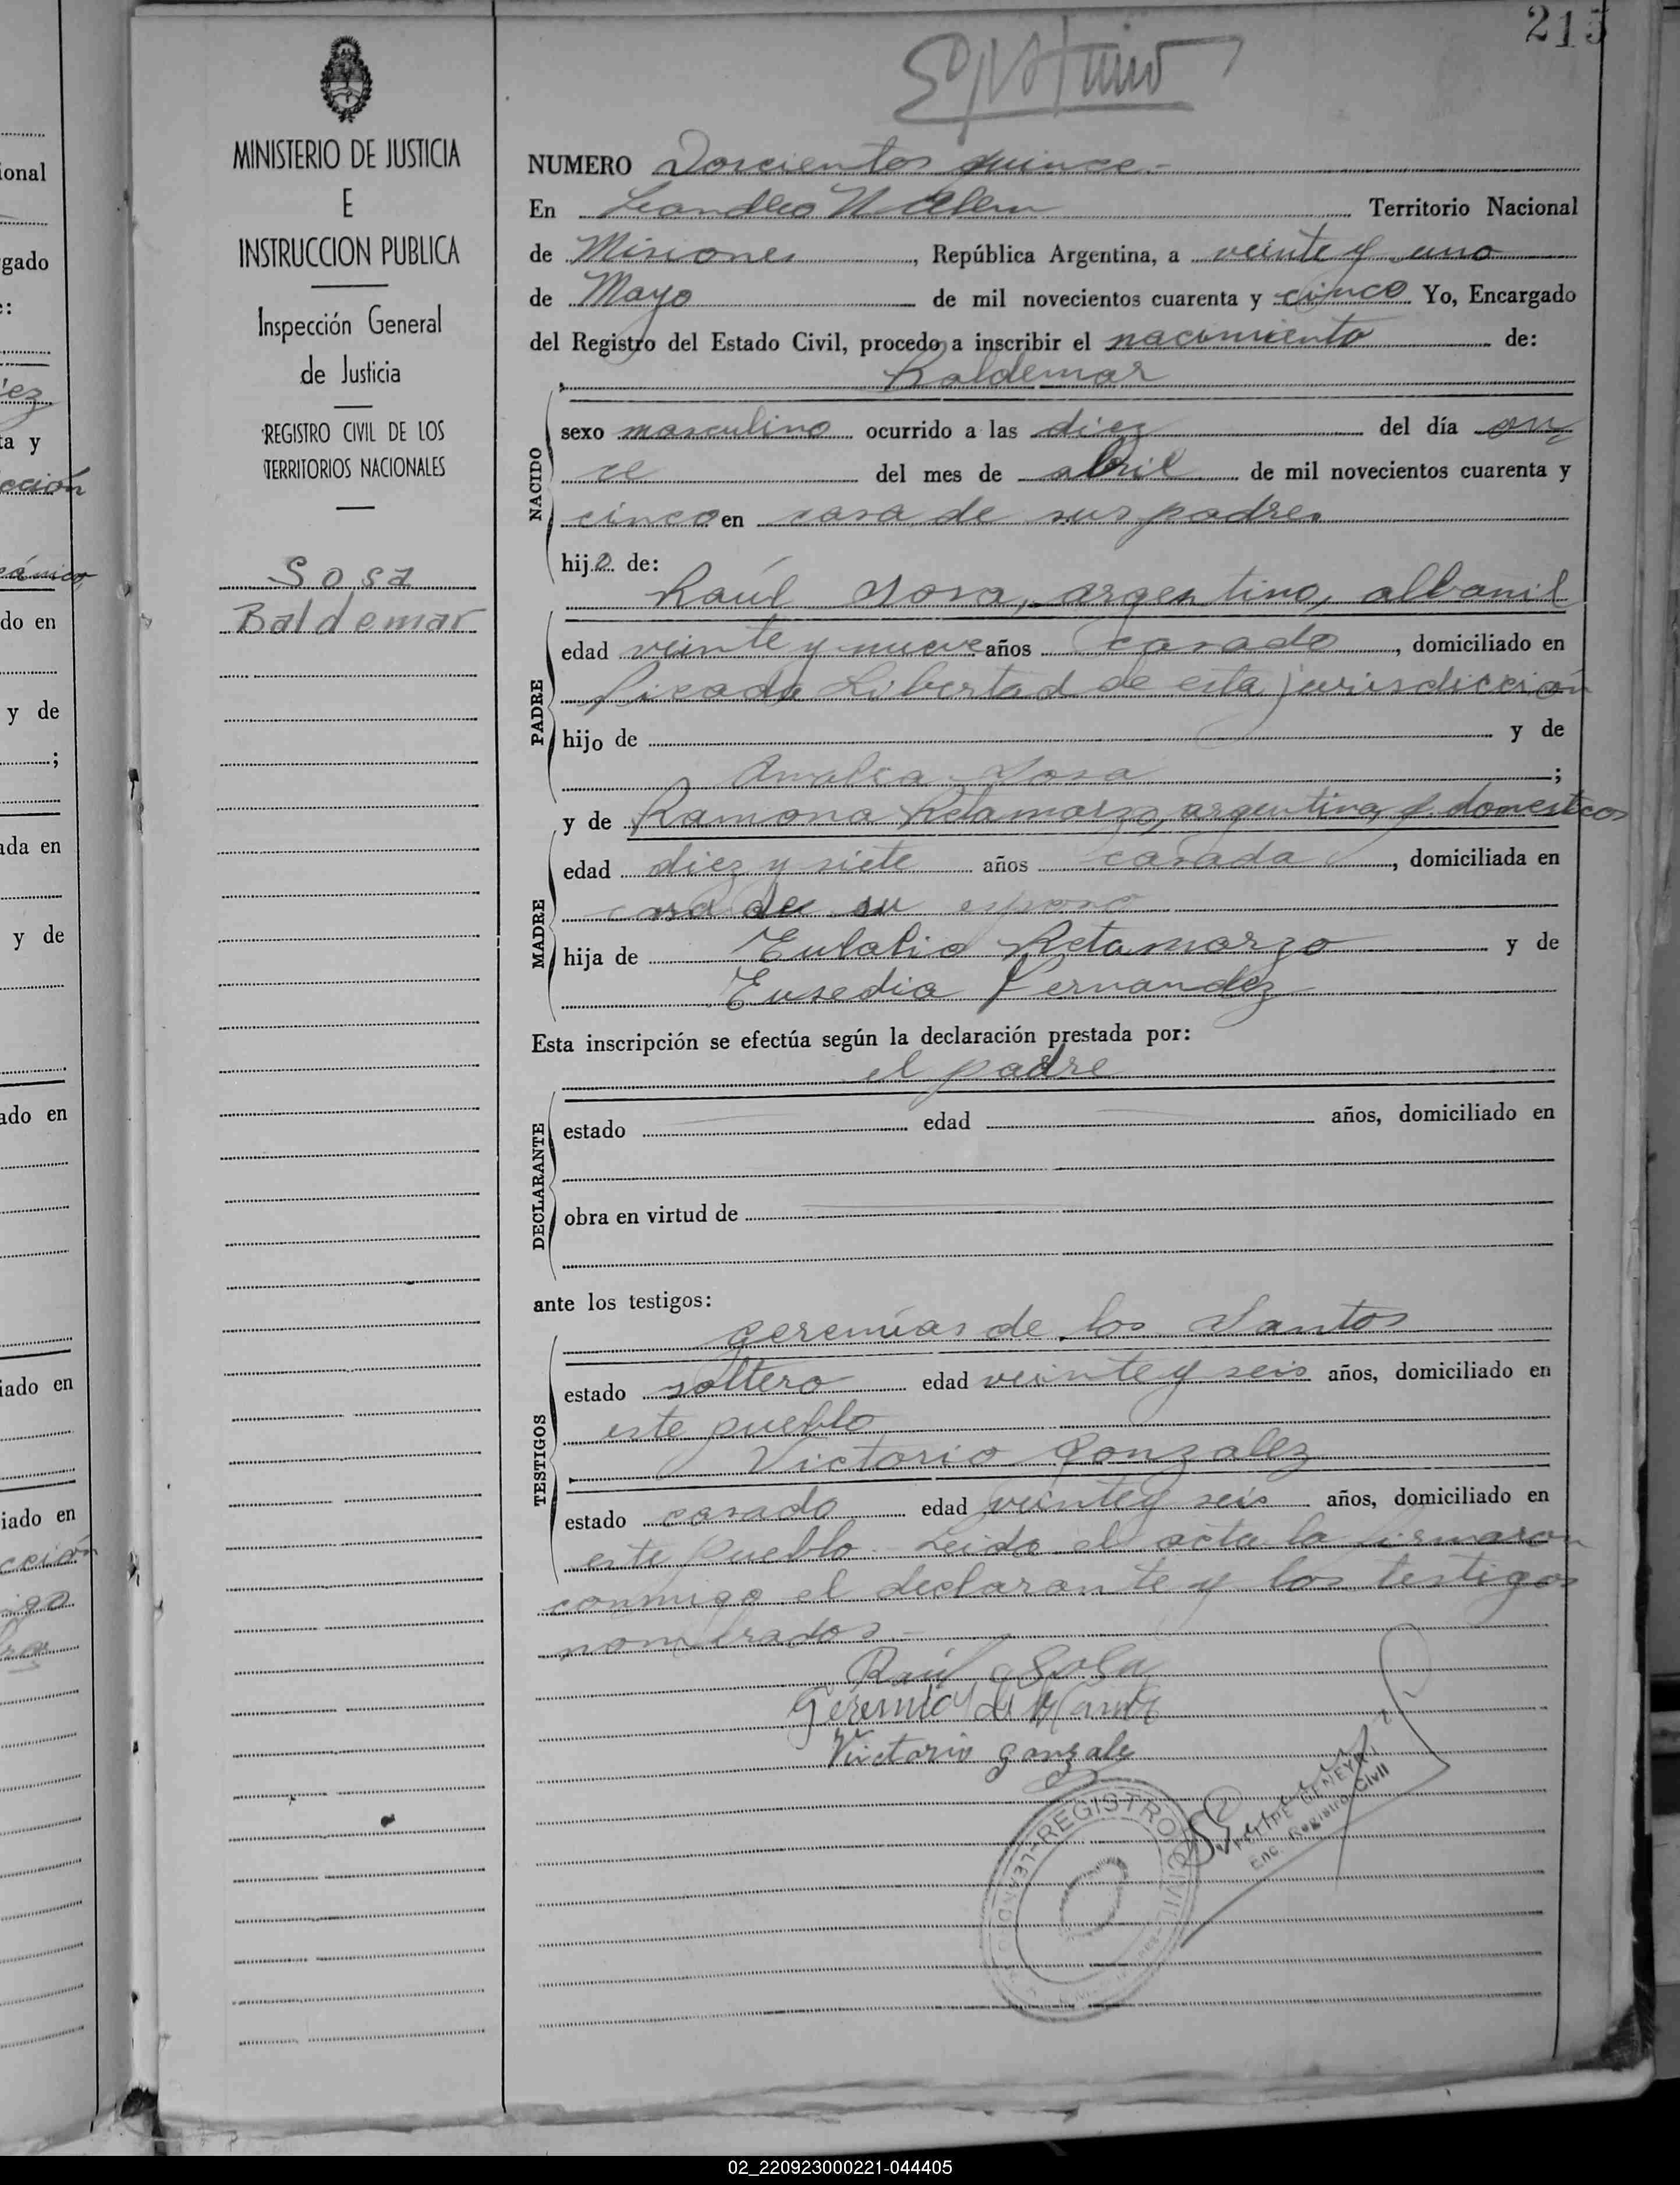 ional
gado
:
ez
ta y
cción
do en
y de
;
ada en
y de
ado en
iado en
iado en
cción
215
MINISTERIO DE JUSTICIA
E
INSTRUCCION PUBLICA
Inspección General
de Justicia
REGISTRO CIVIL DE LOS
TERRITORIOS NACIONALES
Sosa
Baldemar
NUMERO Doscientos quince.-
En Leandro N Alem Territorio Nacional
de Misiones, República Argentina, a veinte y uno
de Mayo de mil novecientos cuarenta y cinco Yo, Encargado
del Registro del Estado Civil, procedo a inscribir el nacimiento de:
Baldemar
NACIDO
sexo masculino ocurrido a las diez del día on
ce del mes de abril de mil novecientos cuarenta y
cinco en casa de sus padres
hijo de:
Raúl Sosa, argentino, albanil
PADRE
edad veinte y nueve años casado, domiciliado en
Picada Libertad de esta jurisdicción
hijo de y de
Amalia Sosa;
MADRE
y de Ramona Retamarzo, argentina, q. domesticos
edad diez y siete años casada, domiciliada en
casa de su esposo
hija de Eulalio Retamarzo y de
Eusedia Fernandez
Esta inscripción se efectúa según la declaración prestada por:
el padre
DECLARANTE
estado edad años, domiciliado en
obra en virtud de
ante los testigos:
TESTIGOS
Geremías de los Santos
estado soltero edad veinte y seis años, domiciliado en
este pueblo
Victorio Gonzalez
estado casado edad veinte y seis años, domiciliado en
este Pueblo.- Leida el acta la firmaron
conmigo el declarante y los testigos
nombrados.-
Raúl Sosa
Victorio Gonzale
REGISTRO CIVIL
FELIPE GENEYRO
Enc. Registro Civil
02_220923000221-044405